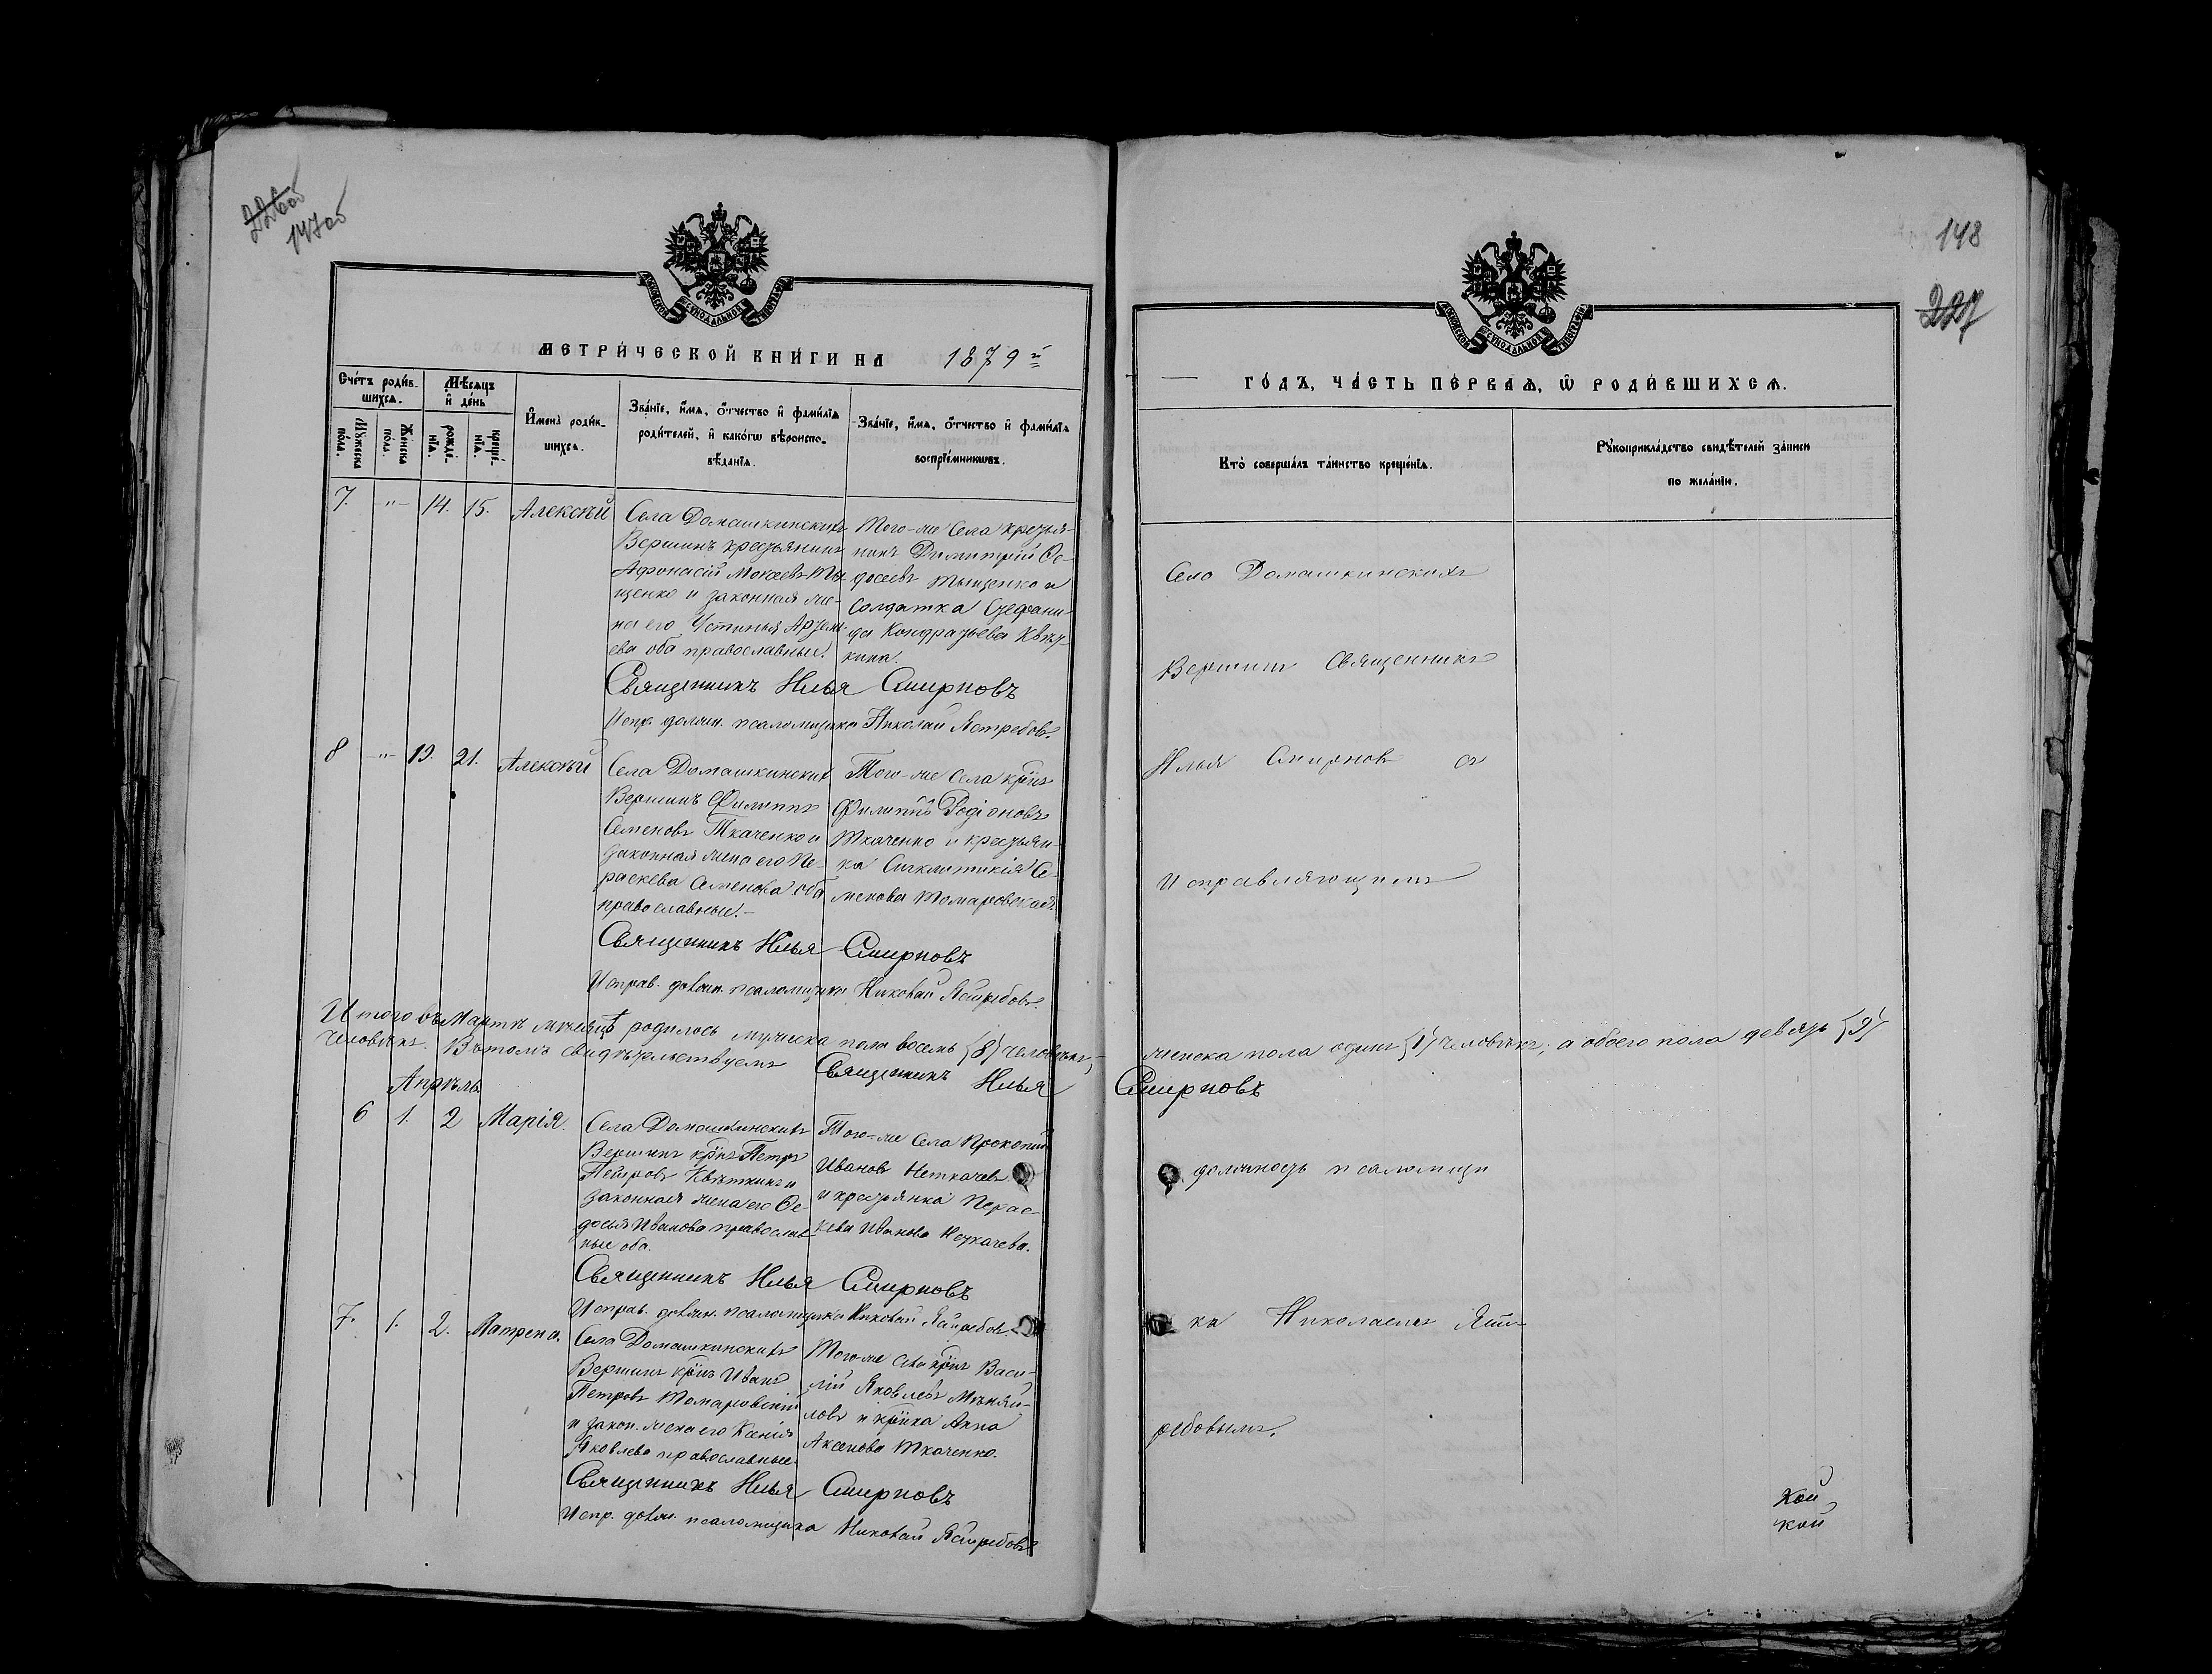 226об
147об
МОСКОВСКОЙ СѴНОДАЛЬНОЙ ТИПОГРАФІИ
МЕТРИ́ЧЕСКОЙ КНИ́ГИ НА 1879 й
Сче́тъ роди́в-
шихсѧ.
Мѣ́сѧцъ
и҆ де́нь
Мꙋ́жеска
по́ла.
Же́нска
по́ла.
рожде́-
нїѧ.
креще́-
нїѧ.
И҆мена̀ роди́в-
шихсѧ.
Зва́нїе, и҆́мѧ, ѻ҆́тчество и҆ фами́лїѧ
роди́телей, и҆ како́гѡ вѣроиспо-
вѣ́данїѧ.
Зва́нїе, и҆́мѧ, ѻ҆́тчество и҆ фами́лїѧ
воспрїе́мникѡвъ.
7. -"- 14. 15. Алексѣй
Села Домашкинскихъ
Вершинъ крестьянинъ
Афонасій Мокеевъ Ты-
щенко и законная же-
на его Устинья Артемь-
ева оба православные.
Того-же Села крестья-
нинъ Димитрій Ѳе-
досеевъ Тыщенко и
Солдатка Стефани-
да Кондратьева Квят-
кина.
Священникъ Илья Смирновъ
Испр. должн. псаломщика Николай Ястребовъ.
8 -"- 19. 21. Алексѣй
Села Домашкинскихъ
Вершинъ Филиппъ
Семеновъ Ткаченко и
законная жена его Пе-
раскева Семенова оба
православные.-
Того-же Села крⷭ҇нъ
Филиппъ Родіоновъ
Ткаченко и крестьян-
ка Сигклитикія Се-
менова Томаровская.
Священникъ Илья Смирновъ
Исправ. должн. псаломщика Николай Ястребовъ.
Итого въ Мартѣ мѣсяцѣ родилось мужеска пола восемь {8} человѣкъ,
человѣкъ. Въ томъ свидѣтельствуемъ Священникъ Илья
Апрѣль
6 1. 2 Марія.
Села Домашкинскихъ
Вершинъ крⷭ҇нъ Петръ
Петровъ Квяткинъ и
законная жена его Ѳе-
досья Иванова православ-
ные оба.
Того-же Села Прокопій
Ивановъ Неткачевъ
и крестьянка Перас-
кева Иванова Неткачева.
Священникъ Илья Смирновъ
Исправ. должн. псаломщика Николай Ястребовъ.
7. 1. 2. Матрена.
Села Домашкинскихъ
Вершинъ крⷭ҇нъ Иванъ
Петровъ Томаровскій
и закон. жена его Ксенія
Яковлева православные.
Того-же села крⷭ҇нъ Васи-
лій Яковлевъ Мѣняй-
ловъ и крⷭ҇нка Анна
Аксенова Ткаченко.
Священникъ Илья Смирновъ
Испр. должн. псаломщика Николай Ястребовъ
148
227
МОСКОВСКОЙ СѴНОДАЛЬНОЙ ТИПОГРАФІИ
ГО́ДЪ, ЧА́СТЬ ПЕ́РВАѦ, Ѽ РОДИ́ВШИХСѦ.
Кто̀ соверша́лъ та́инство креще́нїѧ.
Рꙋкоприкла́дство свидѣ́телей за́писи
по жела́нїи.
Село Домашкинскихъ
Вершинъ Священникъ
Илья Смирновъ съ
Исправляющимъ
женска пола одинъ {1} человѣкъ; а обоего пола девять {9}
Смирновъ
должность псаломщи
ка Николаемъ Яст-
ребовымъ.